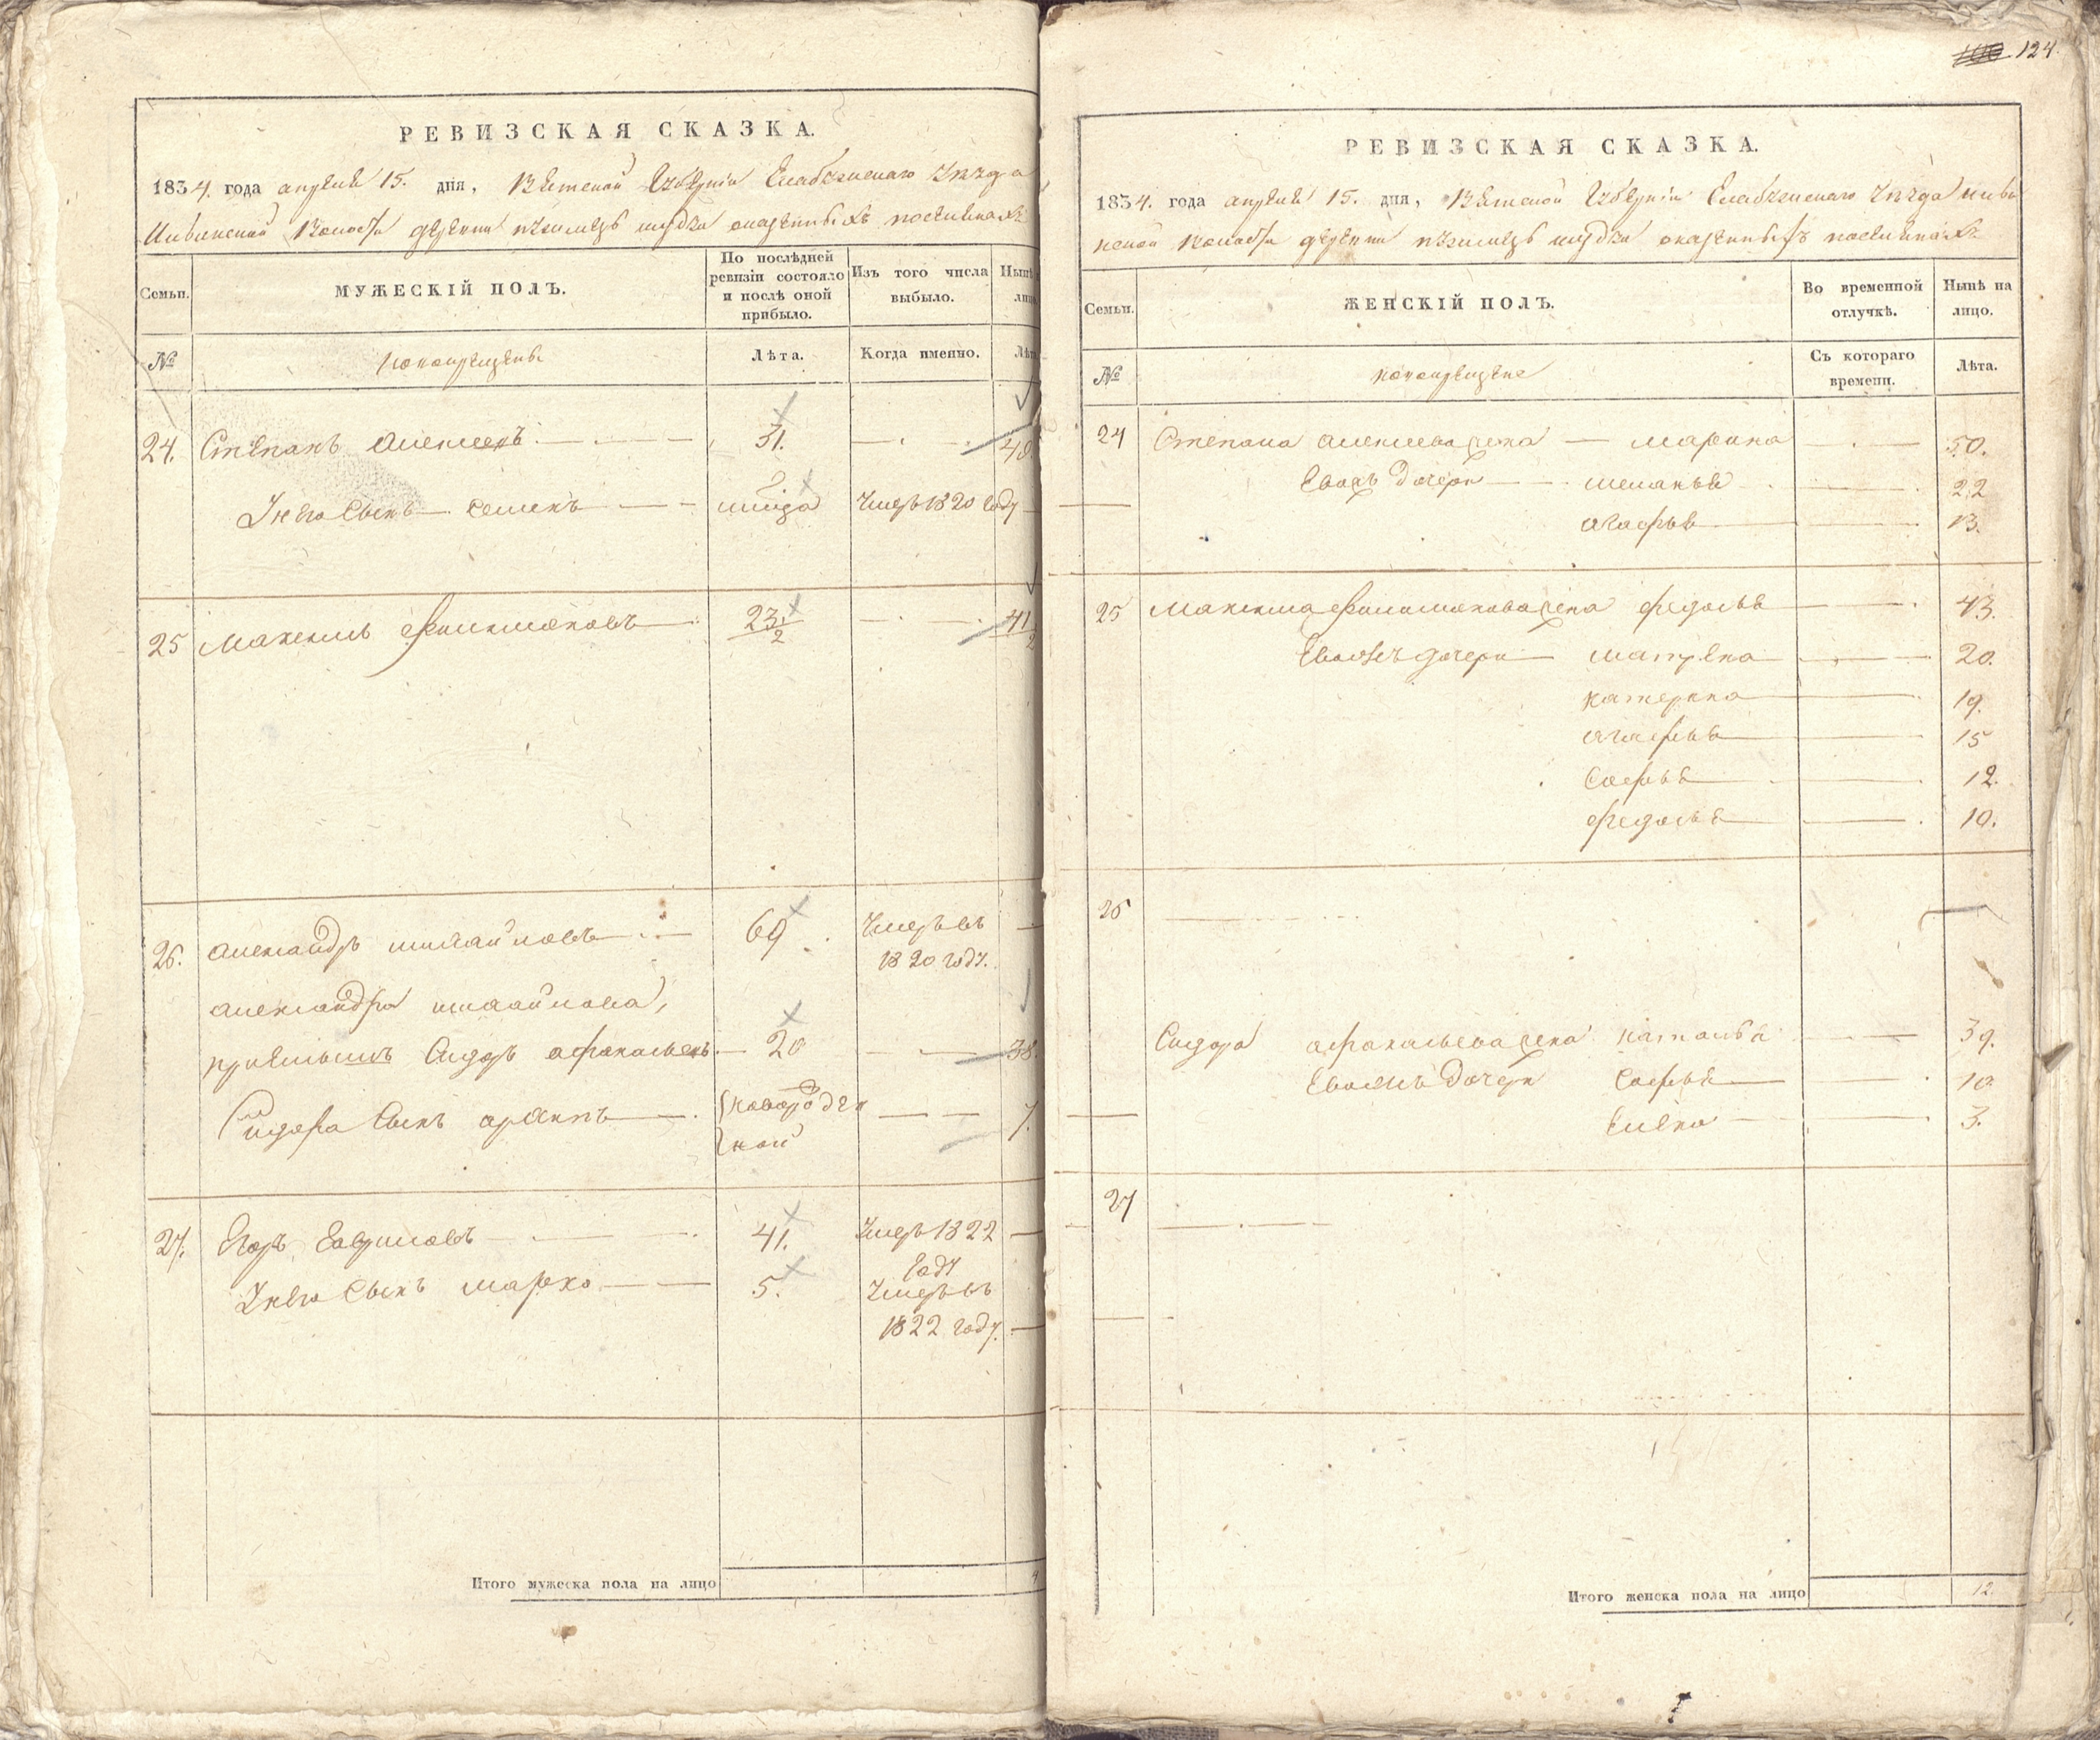 РЕВИЗСКАЯ СКАЗКА.
1834. года апреля 15. дня, Вятской Губернии Елабужскаго Уезда
волости деревни
Семьи.
МУЖЕСКІЙ ПОЛЪ.
По послѣдней ревизіи состояло и послѣ оной прибыло.
Изъ того числа выбыло.
№
новокрещены
Лѣта.
Когда именно.
24. Степанъ Алексеевъ 31.
У него сынъ Семенъ Умеръ 1820 году
25 Максимъ Филимоновъ 23 1/2 41
26. Александръ Михайловъ 69 Умеръ въ
1820 году.
Александра Михайлова,
приемышъ Сидоръ Афанасьевъ 20 38.
Сидора сынъ новорожден
ной 7.
27. Егоръ Гавриловъ 41. Умеръ 1822
году
У него сынъ Марко 5. Умеръ въ
1822 году.
Итого мужеска пола на лицо
124
РЕВИЗСКАЯ СКАЗКА.
1834. года апреля 15. дня, Вятской Губернии Елабужскаго Уезда
волости деревни
Семьи.
ЖЕНСКІЙ ПОЛЪ.
Во временной отлучкѣ.
Нынѣ на лицо.
№
новокрещене
Съ котораго времени.
Лѣта.
24 Степана Алексеева жена Марина 50.
Евоже дочери 22
Агафья 13.
25 Максима Филимонова жена Федосья 43.
Евожъ дочери Матрена 20.
Катерина 19.
Агафья 15
Софья 12.
Федосья 10.
26
Сидора Афанасьева жена Наталья 39.
Евожъ дочери Софья 10
Елена 3.
27
Итого женска пола на лицо 12.